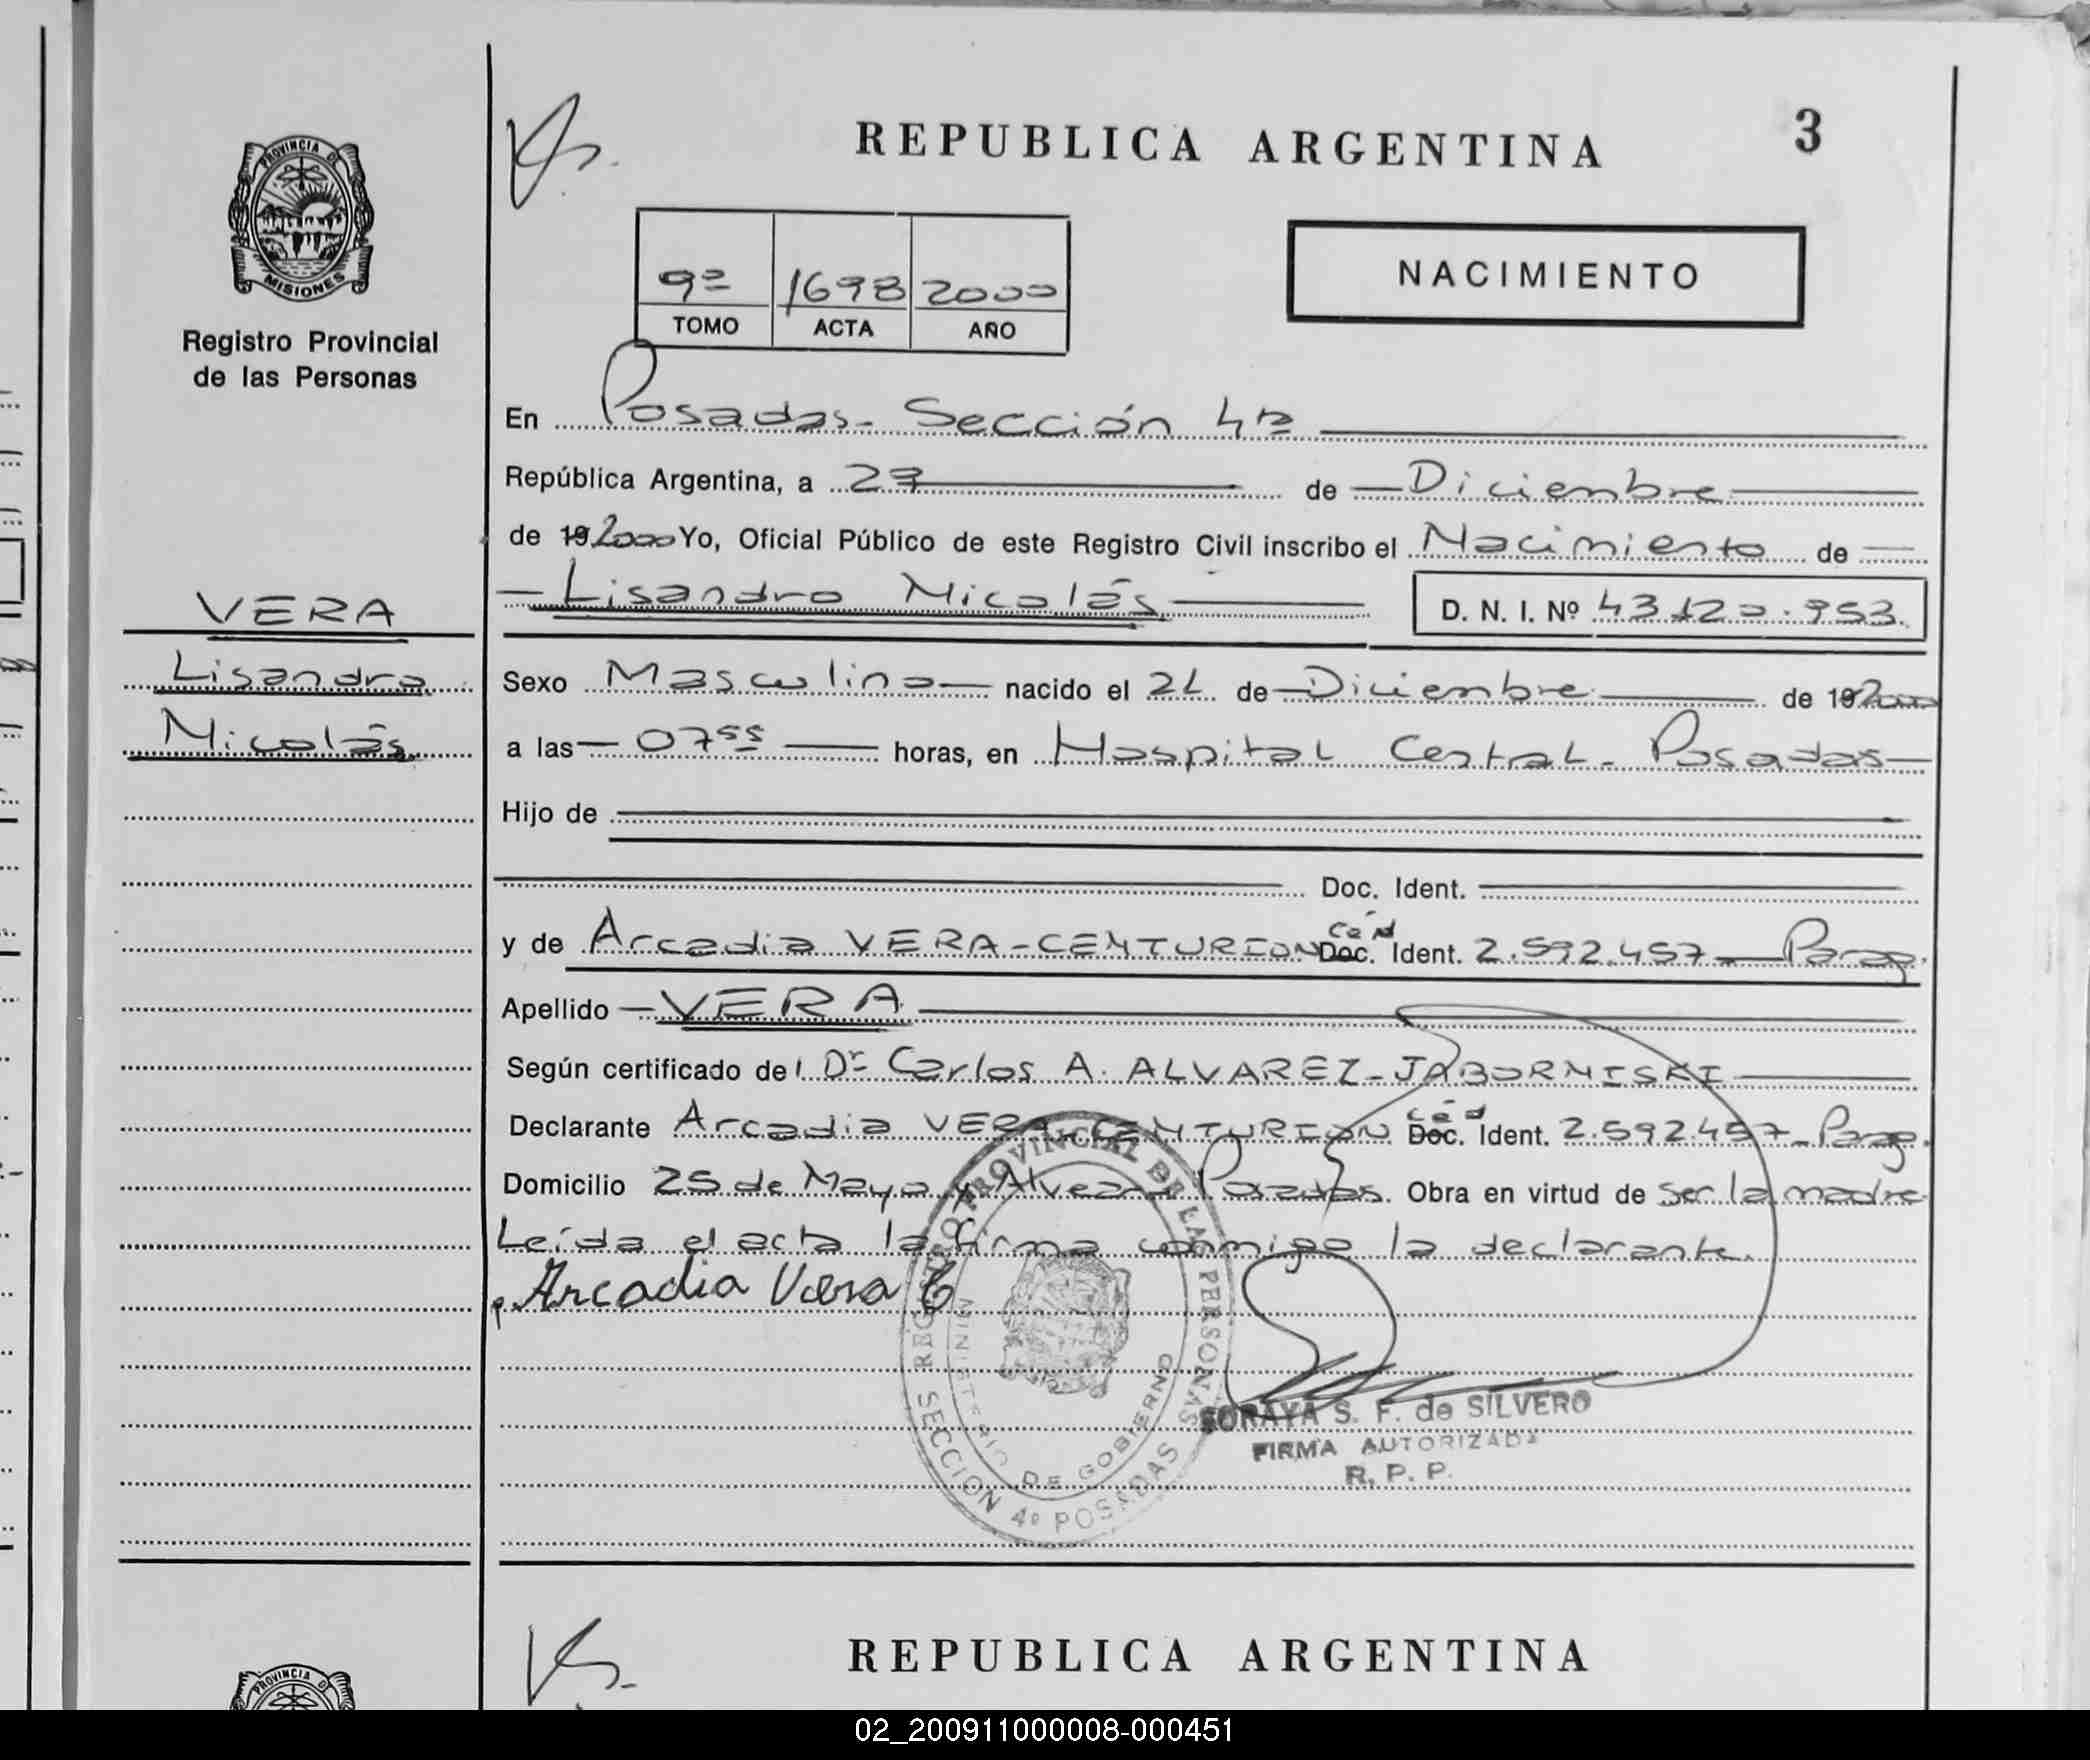 REPUBLICA ARGENTINA
3
PROVINCIA DE MISIONES
Registro Provincial
de las Personas
9º 1698 2000
TOMO ACTA AÑO
NACIMIENTO
En Posadas - Sección 4ª
República Argentina, a 27 de Diciembre
de 19 2000 Yo, Oficial Público de este Registro Civil inscribo el Nacimiento de
VERA
Lisandro
Nicolás
Lisandro Nicolás D. N. I. Nº 43.120.953.
Sexo Masculino nacido el 21 de Diciembre de 19 2000
a las 07 55 horas, en Hospital Central - Posadas
Hijo de
Doc. Ident.
y de Arcadia VERA-CENTURION Céd Doc. Ident. 2.592.457 - Parag.
Apellido VERA
Según certificado del Dr Carlos A. ALVAREZ-JABORNISKI
Declarante Arcadia VERA-CENTURION Céd Doc. Ident. 2.592.457 - Parag.
Domicilio 25 de Mayo y Alvear - Posadas. Obra en virtud de ser la madre
Leída el acta la firma conmigo la declarante.
Arcadia Vera C
REGISTRO PROVINCIAL DE LAS PERSONAS
MINISTERIO DE GOBIERNO
SECCION 4º POSADAS
SORAYA S. F. de SILVERO
FIRMA AUTORIZADA
R. P. P.
REPUBLICA ARGENTINA
PROVINCIA D
02_200911000008-000451